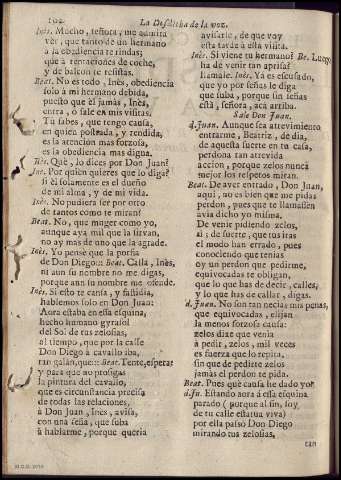 102
La Desdicha de la voz.
Inès. Mucho, señora, me admira
ver, que tanto de un hermano
à la obediencia te rindas;
que à tentaciones de coche,
y de balcon te resistas.
Beat. No es todo, Inès, obediencia
solo à mi hermano debida,
puesto que èl jamàs, Inès,
entra, o sale en mis visitas.
Tu sabes, que tengo causa,
en quien postrada, y rendida,
es la atencion mas forzosa,
es la obediencia mas digna.
Inès. Què, lo dices por Don Juan?
Beat. Por quien quieres que lo diga?
si èl solamente es el dueño
de mi alma, y de mi vida.
Inès. No pudiera ser por otro
de tantos como te miran?
Beat. No, que muger como yo,
aunque aya mil que la sirvan,
no ay mas de uno que la agrade.
Inès. Yo pensè que la porfia
de Don Diego:: Beat. Calla, Inès,
ni aun su nombre no me digas,
porque aun su nombre me ofende.
Inès. Si esto te cansa, y fastidia,
hablemos solo en Don Juan:
Aora estaba en essa esquina,
hecho humano gyrasol
del Sol de tus zelosias,
al tiempo, que por la calle
Don Diego à cavallo iba,
tan galàn, que:: Beat. Tente, espera:
y para què no prosigas
la pintura del cavallo,
que es circunstancia precisa
de todas las relaciones,
à Don Juan, Inès, avisa,
con una seña, que suba
à hablarme, porque queria
avisarle, de que voy
esta tarde à esta visita.
Inès. Si viene tu hermano? Be. Luego
ha de venir tan aprisa?
llamale. Inès. Ya es escusado,
que yo por señas le diga
que suba, porque sin señas
està, señora, acà arriba.
Sale Don Juan.
d. Juan. Aunque sea atrevimiento
entrarme, Beatriz, de dia,
de aquesta suerte en tu casa,
perdona tan atrevida
accion, porque zelos nunca
mejor los respetos miran.
Beat. De aver entrado, Don Juan,
aqui, no es bien que me pidas
perdon, pues que te llamassen
avia dicho yo misma.
De venir pidiendo zelos,
si; de suerte, que tus iras
el modo han errado, pues
conociendo que tenias
oy un perdon que pedirme,
equivocadas te obligan,
que lo que has de decir, calles,
y lo que has de callar, digas.
d. Juan. No son tan necias mis penas,
que equivocadas, elijan
la menos forzosa causa:
zelos dize que venia
à pedir, zelos, mil veces
es fuerza que lo repita,
sin que de pedirte zelos
jamàs el perdon te pida.
Beat. Pues què causa ha dado yo?
d. Ju. Estando aora à essa esquina
parado (porque al fin, soy
de tu calle estatua viva)
por ella passò Don Diego
mirando tus zelosias,
tan